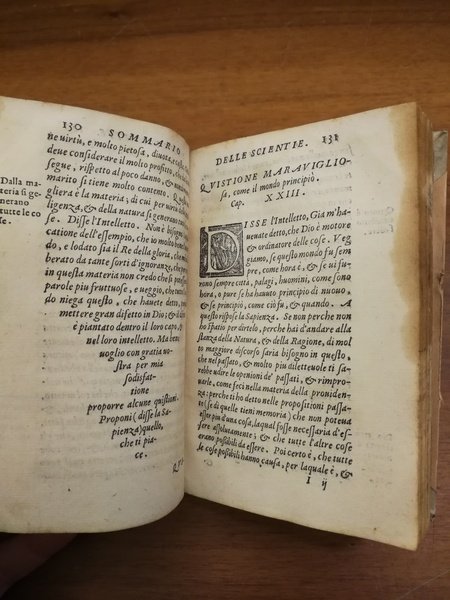 130 SOMMARIO
ne uirtù, e molto pietosa, diuota, e
deue considerare il molto profitto, che
segue, rispetto al poco danno, e
marito si tiene molto contento.
Dalla ma-
teria si ge
nerano
tutte le co
se.
gliera la materia, di cui per uirtù
ligenza, & della natura si generano
se. Disse l'Intelletto. Non è bisogno
catione dell'essempio, che io molto ben
so, e lodato sia il Re della gloria, che
berato da tante sorti d'ignoranze, che
in questa materia non credo che si
parole piu fruttuose, e ueggio, che
do niega questo, che hauete detto,
mettere gran difetto in Dio; &
è piantato dentro il loro capo,
nel loro intelletto. Ma ben
uoglio con gratia uo-
stra per mia
sodisfat-
tione
proporre alcune quistioni.
Proponi (disse la Sa-
pienza) quello,
che ti pia-
ce.
DELLE SCIENTIE. 131
QVISTIONE MARAVIGLIO-
sa, come il mondo principiò.
Cap. XXIII.
DISSE l'Intelletto, Gia m'ha-
uete detto, che Dio è motore
& ordinatore delle cose. Veg-
giamo, se questo mondo fu sem-
pre, come hora è, & se ui fu-
rono sempre città, palagi, huomini, come sono
hora, o pure se ha hauuto principio di nuouo
&, se principiò, come ciò fu, & quando. A
questo rispose la Sapienza. Se non perche non
ho spatio per dirtelo, perche hai d'andare alla
stanza della Natura, & della Ragione, di mol
to maggiore discorso faria bisogno in questo,
che nel passato, & molto piu diletteuole ti sa-
rebbe udire le opinioni de' passati, & rimpro-
uarle, come feci nella materia della prouiden-
za; perche ti ho detto nelle propositioni passa-
te (se di quelle tieni memoria) che non puo eua
essere piu d'una cosa, laqual fosse necessaria d'es
sere assolutamente; & che tutte l'altre cose
erano possibili da essere. Poi certo è, che tutte
le cose possibili hanno causa, per laquale è, &
I ij